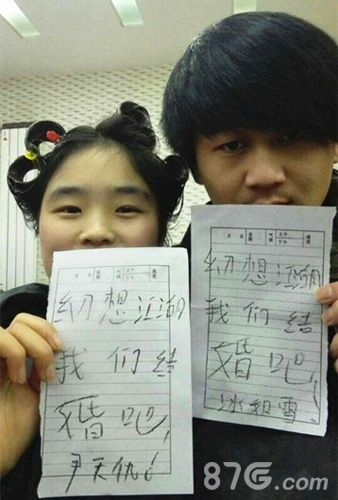 幻想江湖
我们结
婚吧
尹天仇
幻想江湖
我们结
婚吧！
冰和雪
87G.com